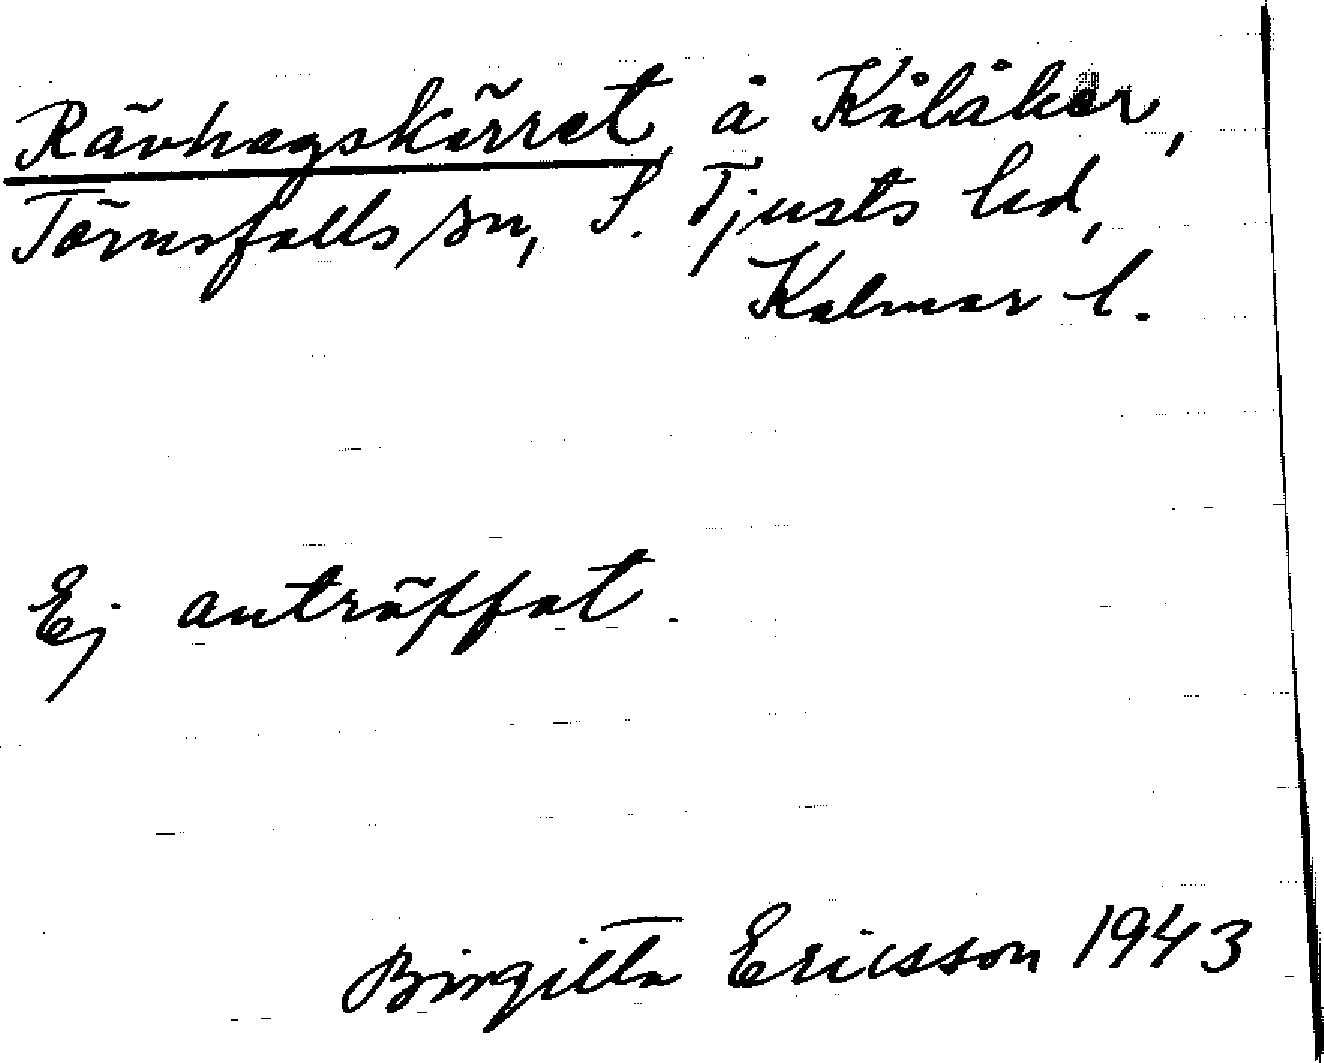 Rävhagskärret, å Kålåker,
Törnsfalls sn, S. Tjusts hd,
Kalmar l.
Ej anträffat.
Birgitta Ericsson 1943